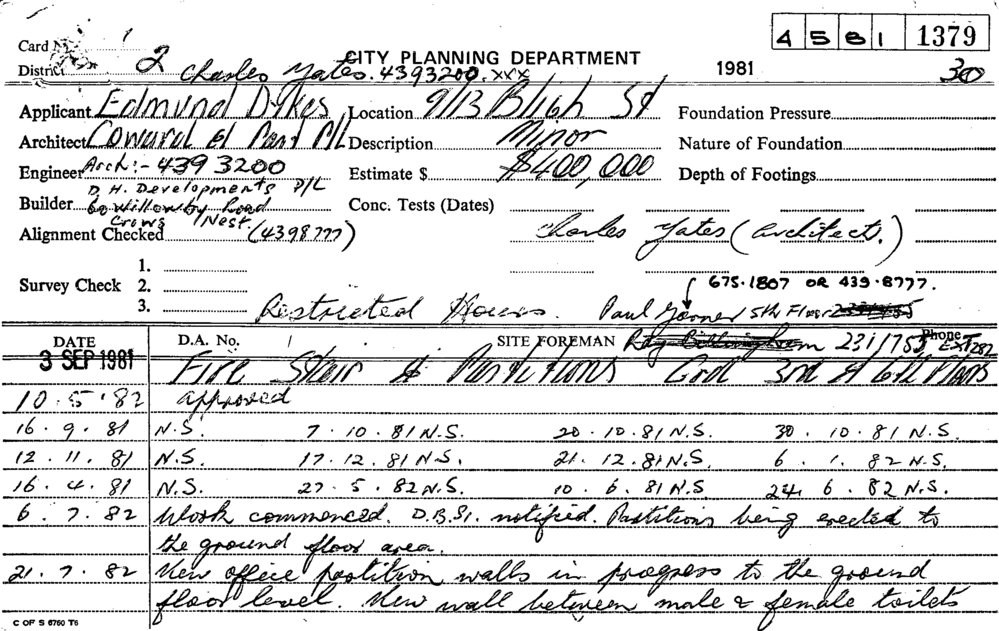 4 5 8 1 1379
Card No. 1
CITY PLANNING DEPARTMENT
District 2 Charles Yates. 4393200. xxx 1981 30
Applicant Edmund Dykes Location 9/13 Bligh St Foundation Pressure
Architect Coward Description Minor Nature of Foundation
Engineer Arch:- 439 3200 Estimate $ $400,000 Depth of Footings
D.H. Developments P/L
Builder 60 Willowby Road Conc. Tests (Dates)
Crows Nest.
Alignment Checked (4398777) Charles Yates (Architect.)
1.
Survey Check 2. 675-1807 OR 439-8777.
3. Restricted Hours. Paul 5th Floor
DATE D.A. No. 1 SITE FOREMAN 231 1753 Phone EXT 282
3 SEP 1981 Fire Stair & Partitions Grd 3rd & 6th Floors
10.5.82 approved
16.9.81 N.S. 7.10.81 N.S. 20.10.81 N.S. 30.10.81 N.S.
12.11.81 N.S. 17.12.81 N.S. 21.12.81 N.S. 6.1.82 N.S.
16.4.81 N.S. 27.5.82 N.S. 10.6.81 N.S. 24.6.82 N.S.
6.7.82 Work commenced. D.B.S. notified. Partitions being erected to
the ground floor area.
21.7.82 New office partition walls in progress to the ground
floor level. New wall between male & female toilets
C OF S 6760 T6